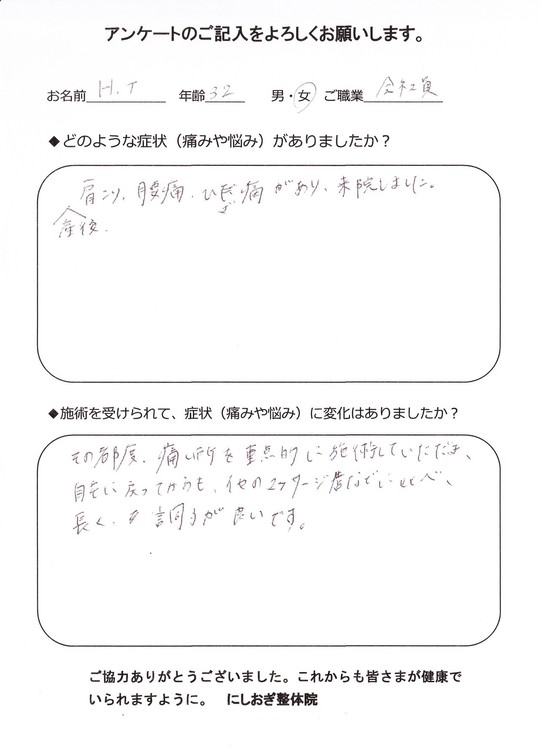 アンケートのご記入をよろしくお願いします。
お名前 H.T 年齢 32 男・女 ご職業 会社員
◆どのような症状（痛みや悩み）がありましたか？
肩こり、腰痛、ひざ痛があり、来院しました。
産後、
◆施術を受けられて、症状（痛みや悩み）に変化はありましたか？
その都度、痛い所を重点的に施術していただき、
自宅に戻ってからも、他のマッサージ店などに比べ、
長く、調子が良いです。
ご協力ありがとうございました。これからも皆さまが健康で
いられますように。 にしおぎ整体院